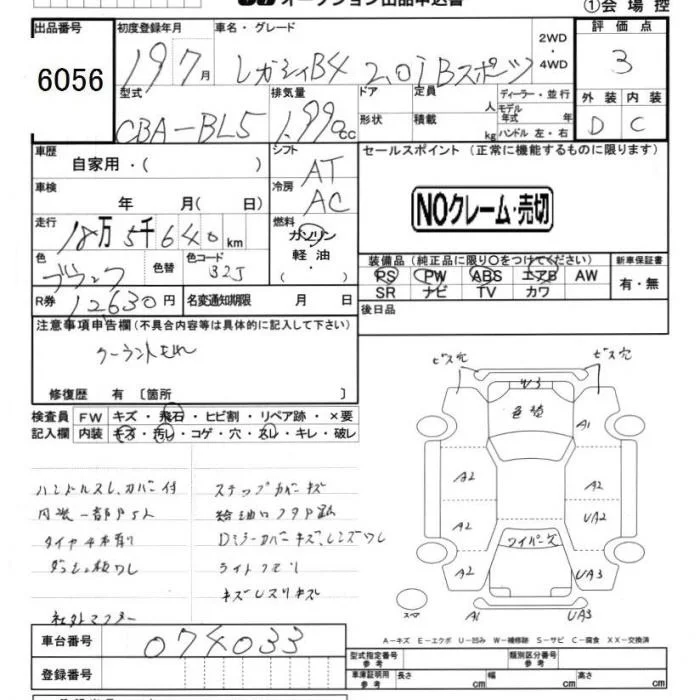 オークション出品申込書
①会場控
出品番号
6056
初度登録年月
19 7月
車名・グレード
レガシィB4 2.0i Bスポーツ
2WD・4WD
評価点
3
型式
CBA-BL5
排気量
1.99cc
ドア
形状
定員
人
積載
kg
ディーラー・並行
モデル年式
年
ハンドル 左・右
外装 内装
D C
車歴
自家用・( )
シフト
AT
車検
年 月( 日)
冷房
AC
セールスポイント (正常に機能するものに限ります)
NOクレーム・売切
走行
18万5千640km
燃料
ガソリン
軽油
( ・ )
色
ブラック
色替
色コード
32J
装備品(純正品に限り○をつけてください)
PS PW ABS エアB AW
SR ナビ TV カワ
新車保証書
有・無
R券
12,630円
名変通知期限 月 日
後日品
注意事項申告欄(不具合内容等は具体的に記入して下さい)
クーラントもれ
修復歴 有〔箇所 〕
検査員記入欄
FW キズ・飛石・ヒビ割・リペア跡・×要
内装 キズ・汚レ・コゲ・穴・スレ・キレ・破レ
ハンドルスレ、カバー付
ステップカバーキズ
タイヤ4本有り
Dミラーカバーキズ、レンズワレ
ライトクモリ
社外マフラー
ビス穴
ビス穴
W3
色褪
A1
A2
A2
A2
UA2
ワイパーキズ
A2
UA3
スペア
A1
UA3
A-キズ E-エクボ U-凹み W-補修跡 S-サビ C-腐食 XX-交換済
車台番号
074033
登録番号
型式指定番号
参考
類別区分番号
参考
車庫証明用
参考
長さ cm
幅 cm
高さ cm